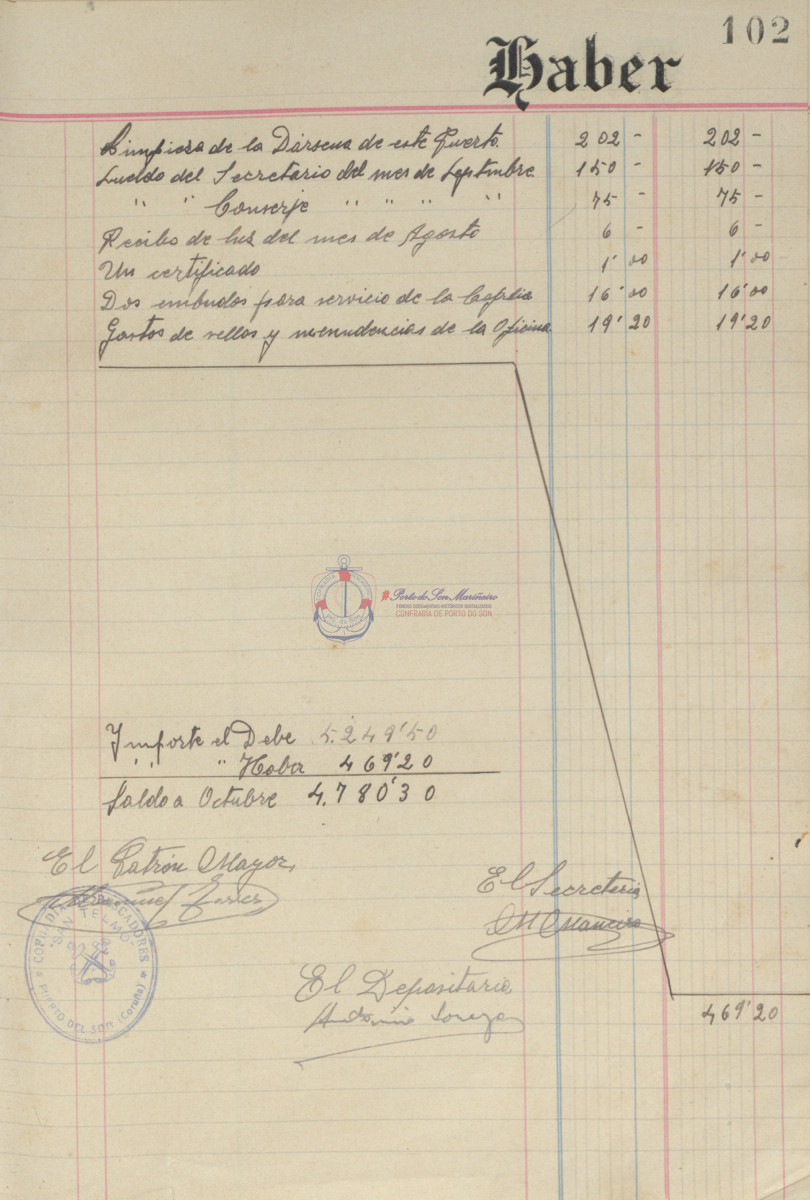 102
Haber
Limpieza de la Dársena de este Puerto. 202 - 202 -
Sueldo del Secretario del mes de Septmbre 150 - 150 -
" " Conserje " " " " 75 - 75 -
Recibo de luz del mes de Agosto 6 - 6 -
Un certificado 1'00 1'00
Dos embudos para servicio de la Cofradia 16'00 16'00
Gastos de sellos y menudencias de la Oficina 19'20 19'20
Porto do Son Mariñeiro
FONDOS DOCUMENTAIS HISTÓRICOS DIXITALIZADOS
CONFRARÍA DE PORTO DO SON
Importe el Debe 5.249'50
" " Haber 469'20
Saldo a Octubre 4.780'30
El Patrón Mayor,
El Secretario
COFRADIA PESCADORES
"SAN TELMO"
PUERTO DEL SON (Coruña)
El Depositario
Antonio
469'20